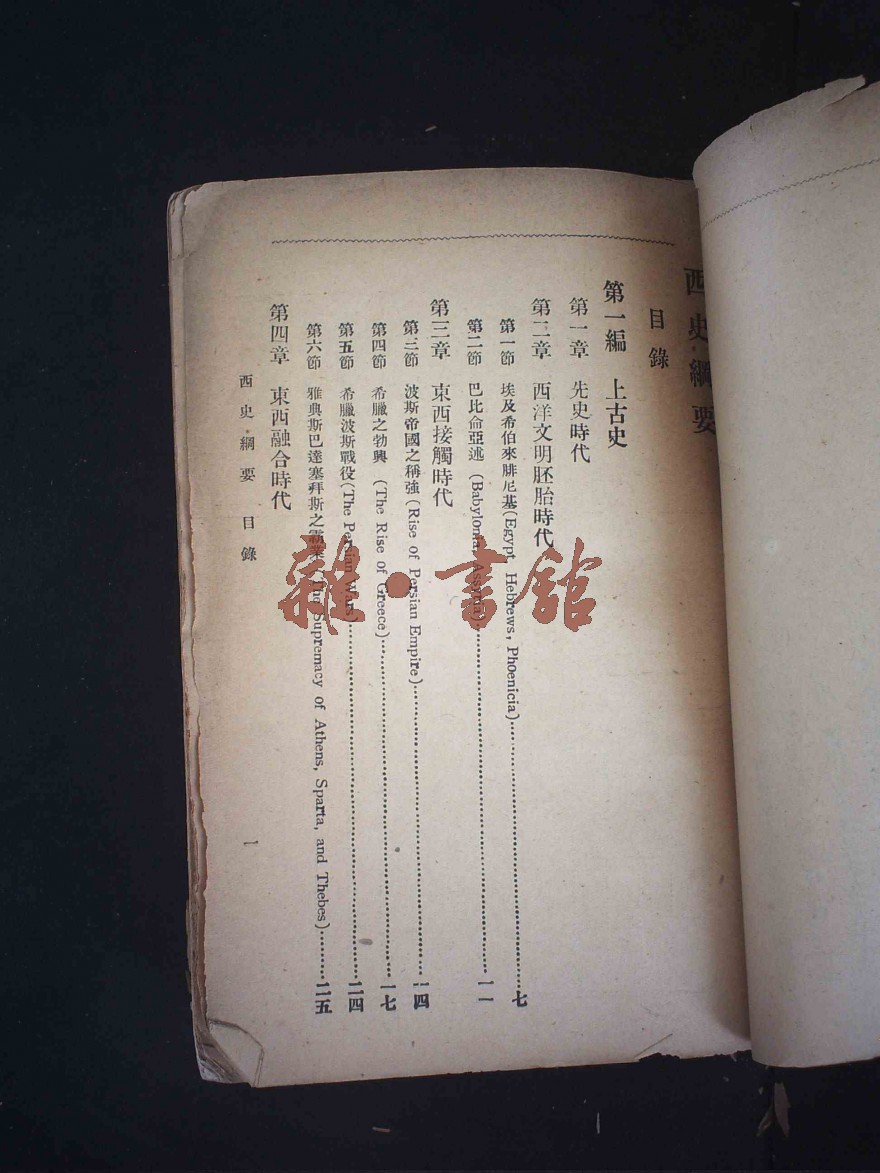 西史綱要
目錄
第一編 上古史
第一章 先史時代
第二章 西洋文明胚胎時代
第一節 埃及希伯來腓尼基(Egypt, Hebrews, Phoenicia)……七
第二節 巴比侖亞述 (Babylonia, Assyria)……一一
第三章 東西接觸時代
第三節 波斯帝國之稱強(Rise of Persian Empire)……一四
第四節 希臘之勃興 (The Rise of Greece)……一七
第五節 希臘波斯戰役(The Persian Wars)……二四
第六節 雅典斯巴達塞拜斯之霸業(The Supremacy of Athens, Sparta, and Thebes)……二五
第四章 東西融合時代
西史綱要 目錄 一
雜·書館